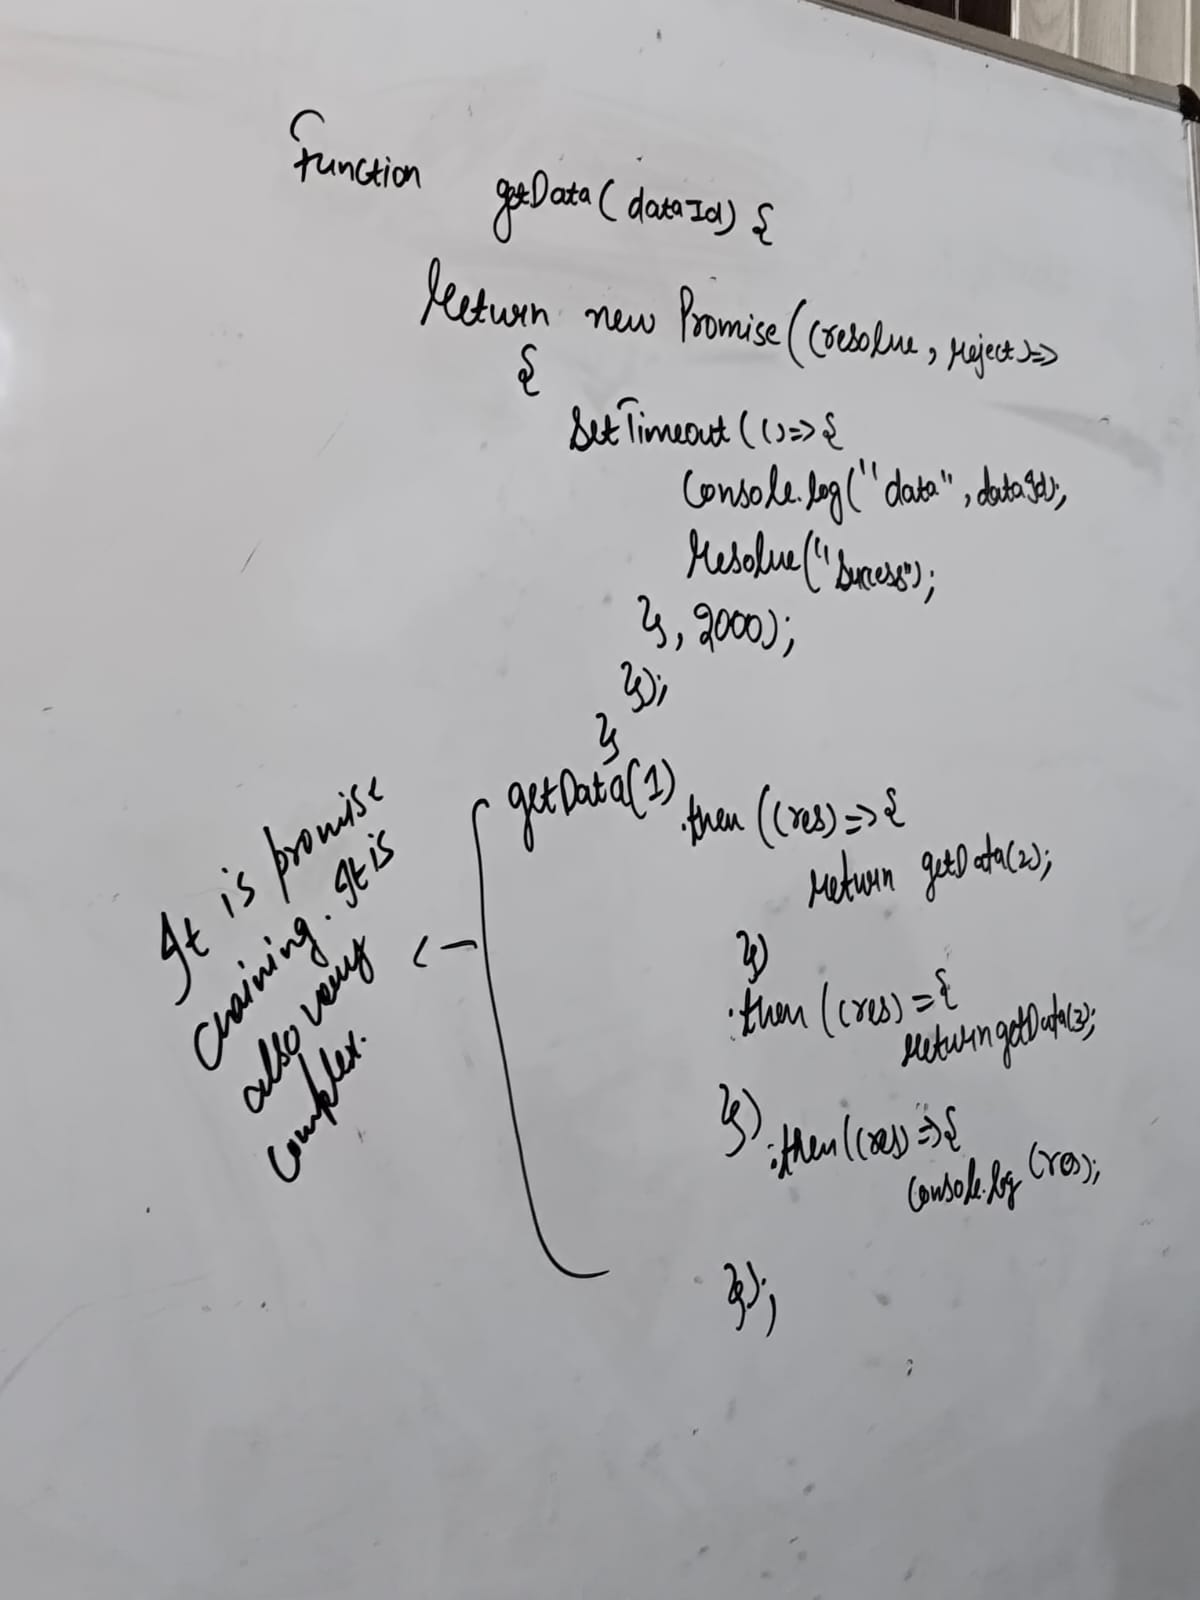 Function getData(dataId) {
return new Promise((resolve, reject)=>
{
SetTimeout(()=>{
Console.log("data", dataId);
Resolve("Success");
}, 2000);
});
}
getData(1)
.then((res)=>{
return getData(2);
})
.then((res)={
return getData(3);
})
.then((res)=>{
Console.log(res);
});
It is promise
chaining. It is
also very
complex.